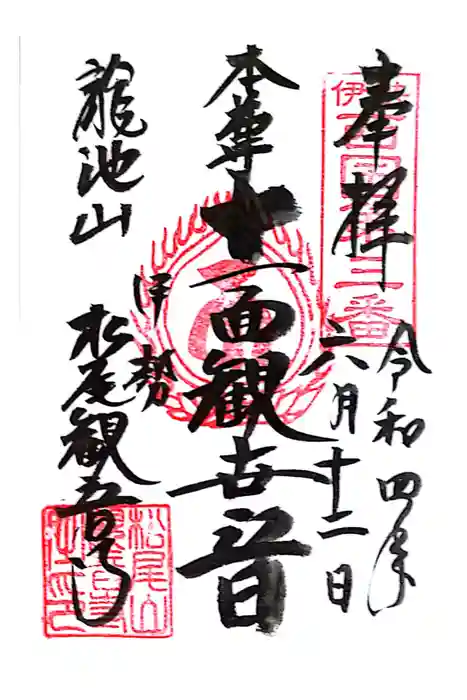 奉拝
令和四年
六月十二日
伊勢西国第三番
本尊
十一面観世音
龍池山
伊勢
松尾観音寺